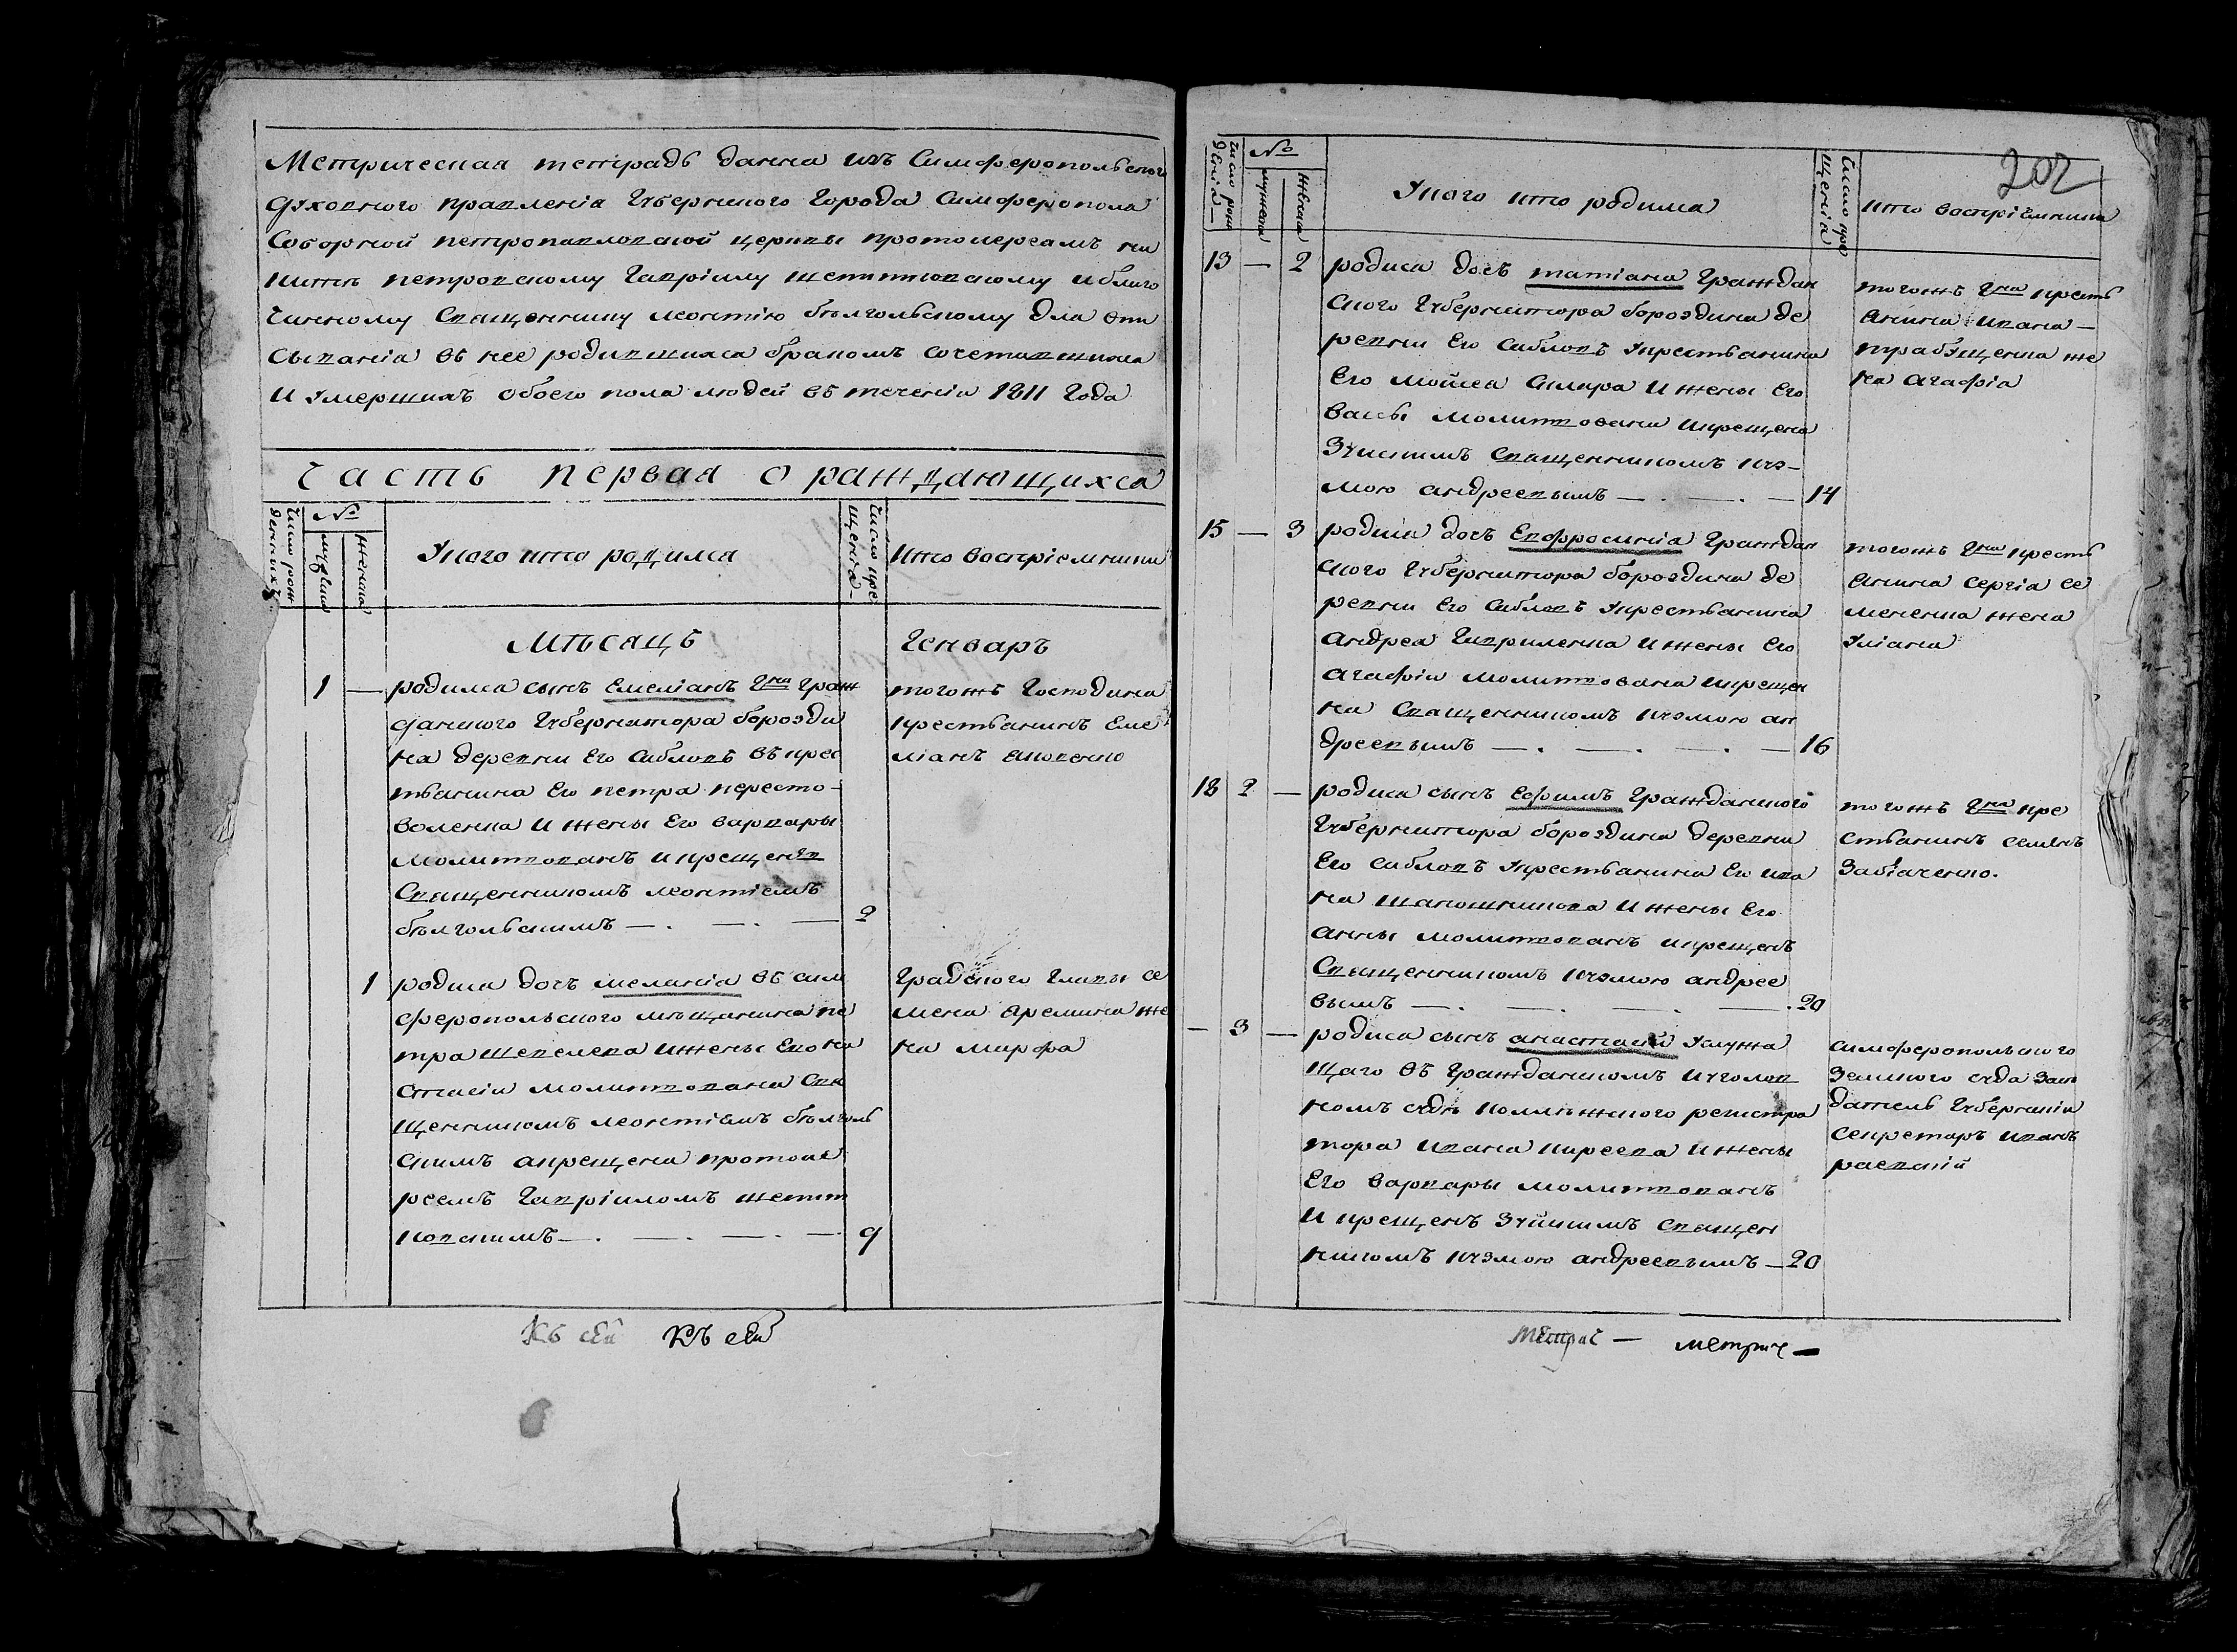 Метрическая тетрадь данна изъ Симферопольского
духовного правленія Губернского Города Симферопола
Соборной петропавловской церкви протоиереамъ ни
ките петровскому Гавріилу щепинскому и благо
чинному Священнику леонтію белгольскому для впи
сыванія въ нее родившихся бракомъ сочетавшихся
и умершихъ обоего пола людей въ теченіи 1811 Года
Часть первая о раждающихся
Число рож
деніихъ
№
мужска
женска
У кого кто родился
Число кре
щенія
Кто воспріемники
Мѣсяцъ Генваръ
1 — родился сынъ Емеліанъ Гна Граж
данского Губернатора борозди
на деревни Его сабловъ въ крес
тьянина Его петра кересто-
воленка и жены Его варвары
молитвованъ и крещенъ
Священникомъ леонтіемъ
бѣлгольскимъ — . — . — 2
тогожъ Господина
крестьянинъ Еме
ліанъ
1 родилась дочъ меланія въ сим
феропольского мѣщанина пе
тра шевелева и жены Его на
стасіи молитвована Свя
щенникомъ леонтіемъ бѣлголь
скимъ а крещена протоие
реемъ Гавріиломъ щепин
ковскимъ — . — . — . — 9
Градского Главы се
мена Яремина же
на марфа
Къ сей Къ сей
202
Число рож
денія
№
мужска
женска
У кого кто родился
Число кре
щенія
Кто воспріемники
13 — 2 родилса дочъ татіана Граждан
ского Губернатора бороздина де
ревни Его сабловъ у крестьянина
Его мойсея Скляра и жены Его
вассы молитвована и крещена
Зуискимъ Священникомъ куз-
мою андреевымъ — . — . — 14
тогожъ Гна кресть
янина ивана —
трабущенка же
на агафіа
15 — 3 родилса дочъ Евфросинія Граждан
ского Губернатора бороздина де
ревни Его сабловъ у крестьянина
андрея Гавриленка и жены Его
агафіи молитвована и крещен
на Священникомъ кузмою ан
дреевымъ — . — . — . — 16
тогожъ Гна кресть
янина сергіа се
мененка жена
Уліана
18 2 — родилса сынъ Ефимъ Гражданского
Губернатора бороздина деревни
Его сабловъ у крестьянина Его ива
на шапошникова и жены Его
анны молитвованъ и крещенъ
Священникомъ кузмою андрее
вымъ — . — . — . — . 20
тогожъ Гна кре
стьянинъ семенъ
Забіаченко.
— 3 — родилса сынъ анастасій у служа
щаго въ Гражданскомъ и уголов
номъ суде коллежского регистра
тора ивана киреева и жены
Его варвары молитвованъ
и крещенъ Зуйскимъ Священ
никомъ кузмою андреевымъ — 20
симферопольского
Земского суда Засе
датель Губернскій
Секретаръ иванъ
раевскій
Метрич — метрич —